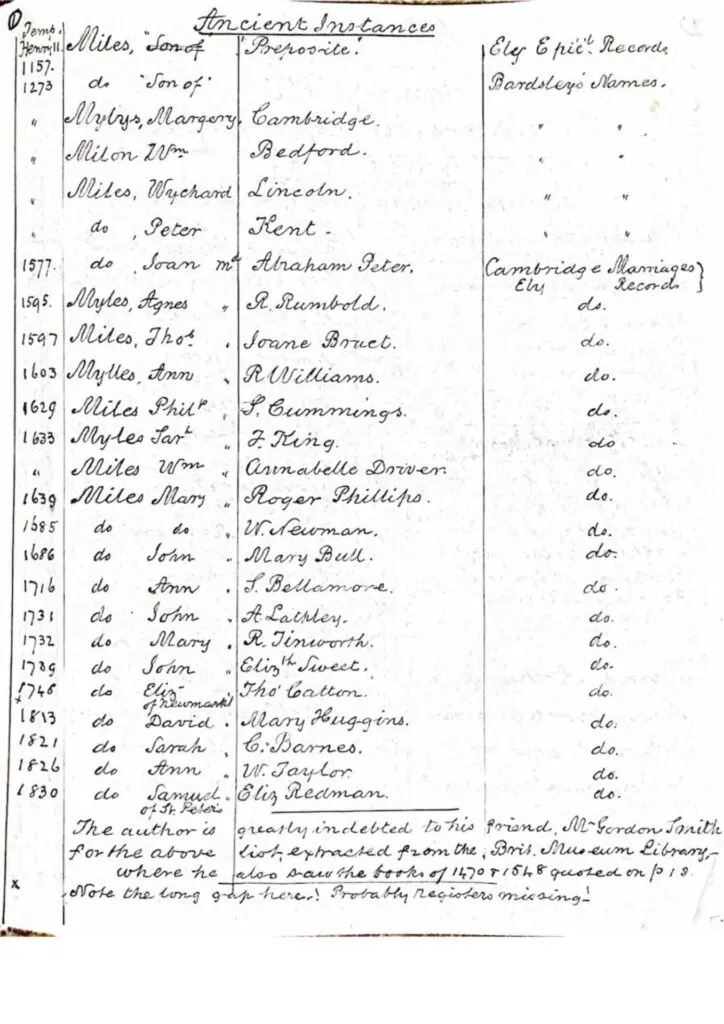 Ancient Instances
Temp. Henry II. 1157. Miles, "Son of "Preposite". Ely Epic.l Records
1273 do "Son of" Bardsley's Names.
" Mylys, Margery. Cambridge. " "
" Milon Wm Bedford. " "
" Miles, Wychard Lincoln. " "
" do , Peter Kent. " "
1577. do , Joan md Abraham Peter. Cambridge Marriages } Ely Records
1595. Myles, Agnes " R. Rumbold. do.
1597 Miles, Thos. " Joane Bruet. do.
1603 Mylles, Ann " R Williams. do.
1629 Miles Philp " S. Cummings. do.
1633 Myles Sarh " J. King. do
" Miles Wm " Annabelle Driver. do.
1639 Miles Mary " Roger Phillips. do.
1685 do do " W. Newman. do.
1686 do John " Mary Bull. do.
1716 do Ann " S. Bellamore. do.
1731 do John " A Lathley. do.
1732 do Mary " R. Tinworth. do.
1739 do John " Elizth Sweet. do.
1748 do Eliz of Newmarkt " Tho Catton. do.
x
1813 do David " Mary Huggins. do.
1821 do Sarah " C. Barnes. do.
1826 do Ann " W. Taylor. do.
1830 do Samuel of St. Peters " Eliz Redman. do.
The author is greatly indebted to his friend, Mr Gordon Smith
for the above list, extracted from the Brit. Museum Library,-
where he also saw the books of 1470 & 1548 quoted on p 18.
x Note the long gap here! Probably registers missing!